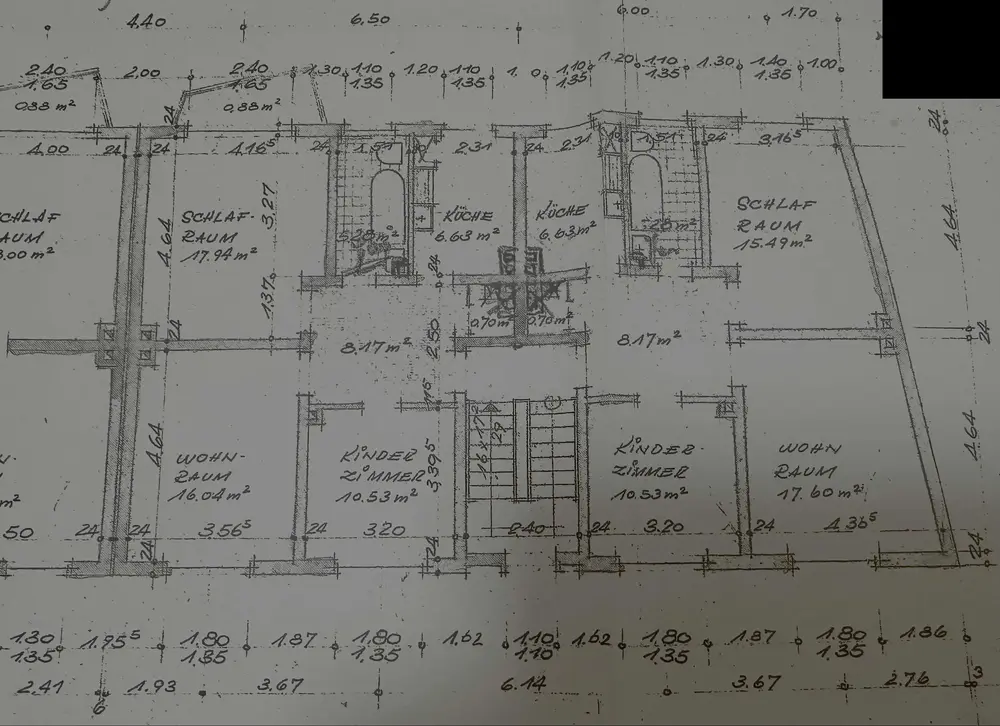 4.40
6.50
6.00
1.70
2.40
1.65
0.88 m²
2.00
2.40
1.65
0.88 m²
1.30
1.10
1.35
1.20
1.10
1.35
1.10
1.35
1.20
1.10
1.35
1.30
1.40
1.35
1.00
24
24
4.00
24
24
4.16⁵
24
1.51
2.31
24
2.31
1.51
24
3.16⁵
SCHLAF-
RAUM
17.94 m²
4.64
3.27
1.37⁵
KÜCHE
6.63 m²
KÜCHE
6.63 m²
SCHLAF
RAUM
15.49 m²
4.64
24
24
24
0.70 m²
0.70 m²
8.17 m²
2.50
8.17 m²
11⁵
16 x 17²
29
4.64
WOHN-
RAUM
16.04 m²
KINDER
ZIMMER
10.53 m²
3.39⁵
KINDER-
ZIMMER
10.53 m²
WOHN
RAUM
17.60 m²
4.64
50
24
24
3.56⁵
24
3.20
2.40
24
3.20
24
4.36⁵
24
24
24
1.30
1.35
1.95⁵
1.80
1.35
1.87
1.80
1.35
1.62
1.10
1.10
1.62
1.80
1.35
1.87
1.80
1.35
1.86
2.41
6
1.93
3.67
6.14
3.67
2.76
3